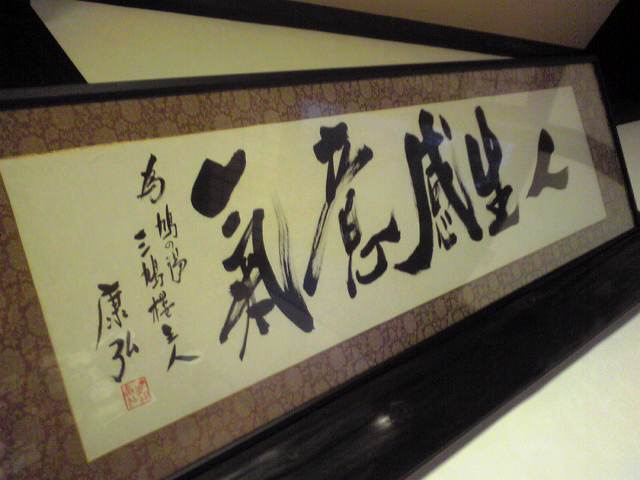 人生感意氣
為鳩の湯
三鳩楼主人
康弘